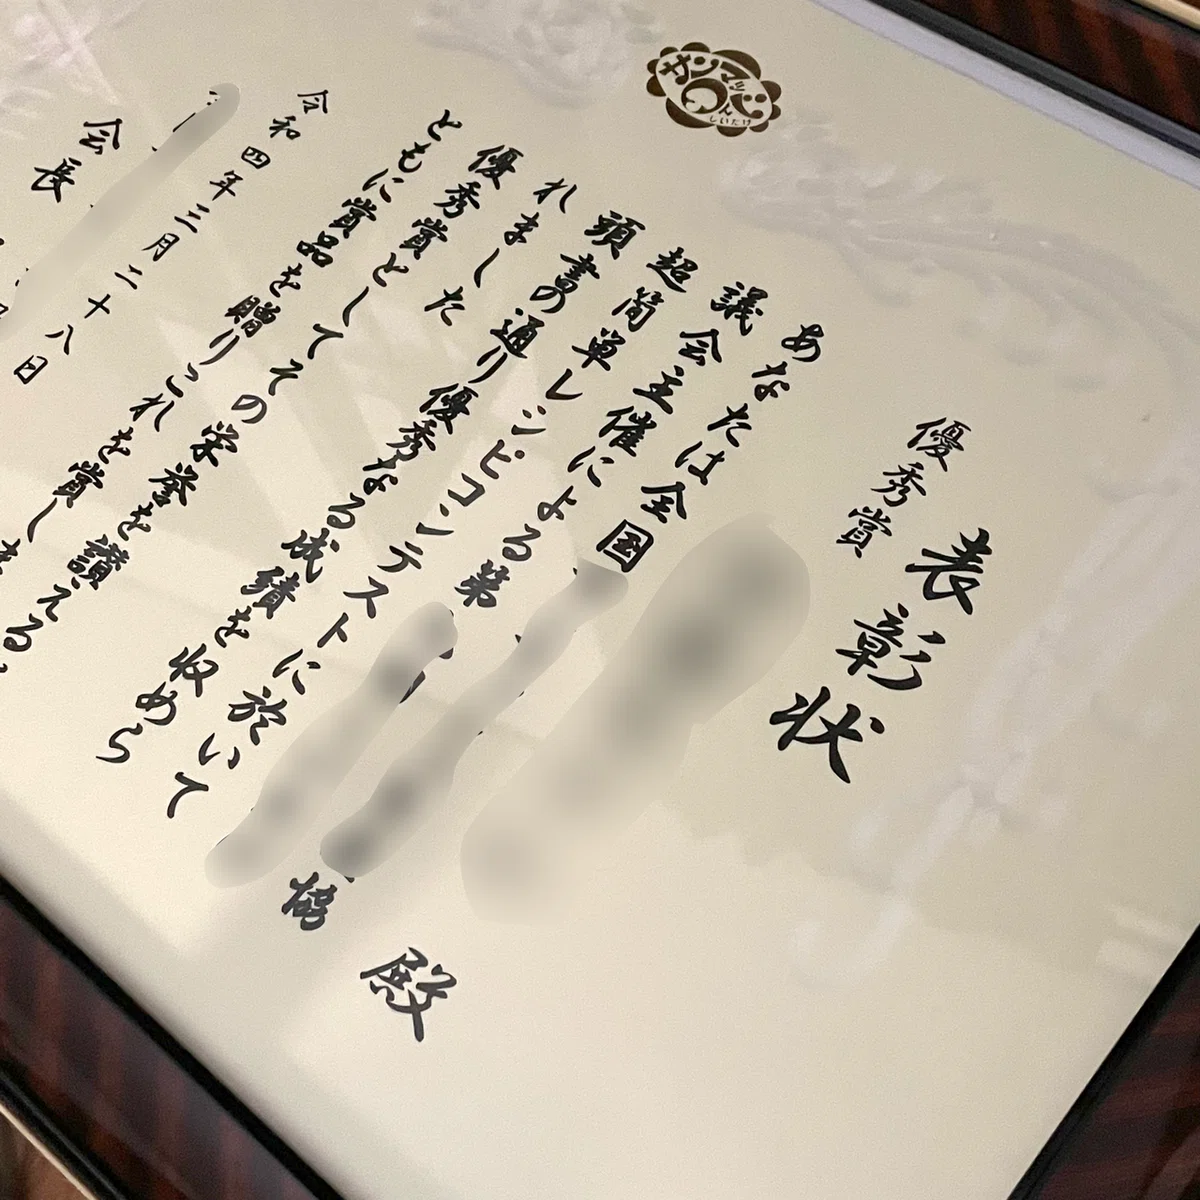 しいたけ
表彰状
優秀賞
殿
あなたは全国 協
議会主催による第
超簡単レシピコンテストに於いて
頭書の通り優秀なる成績を収めら
れました
優秀賞としてその栄誉を讃えると
ともに賞品を贈りこれを賞しま
令和四年三月二十八日
会長